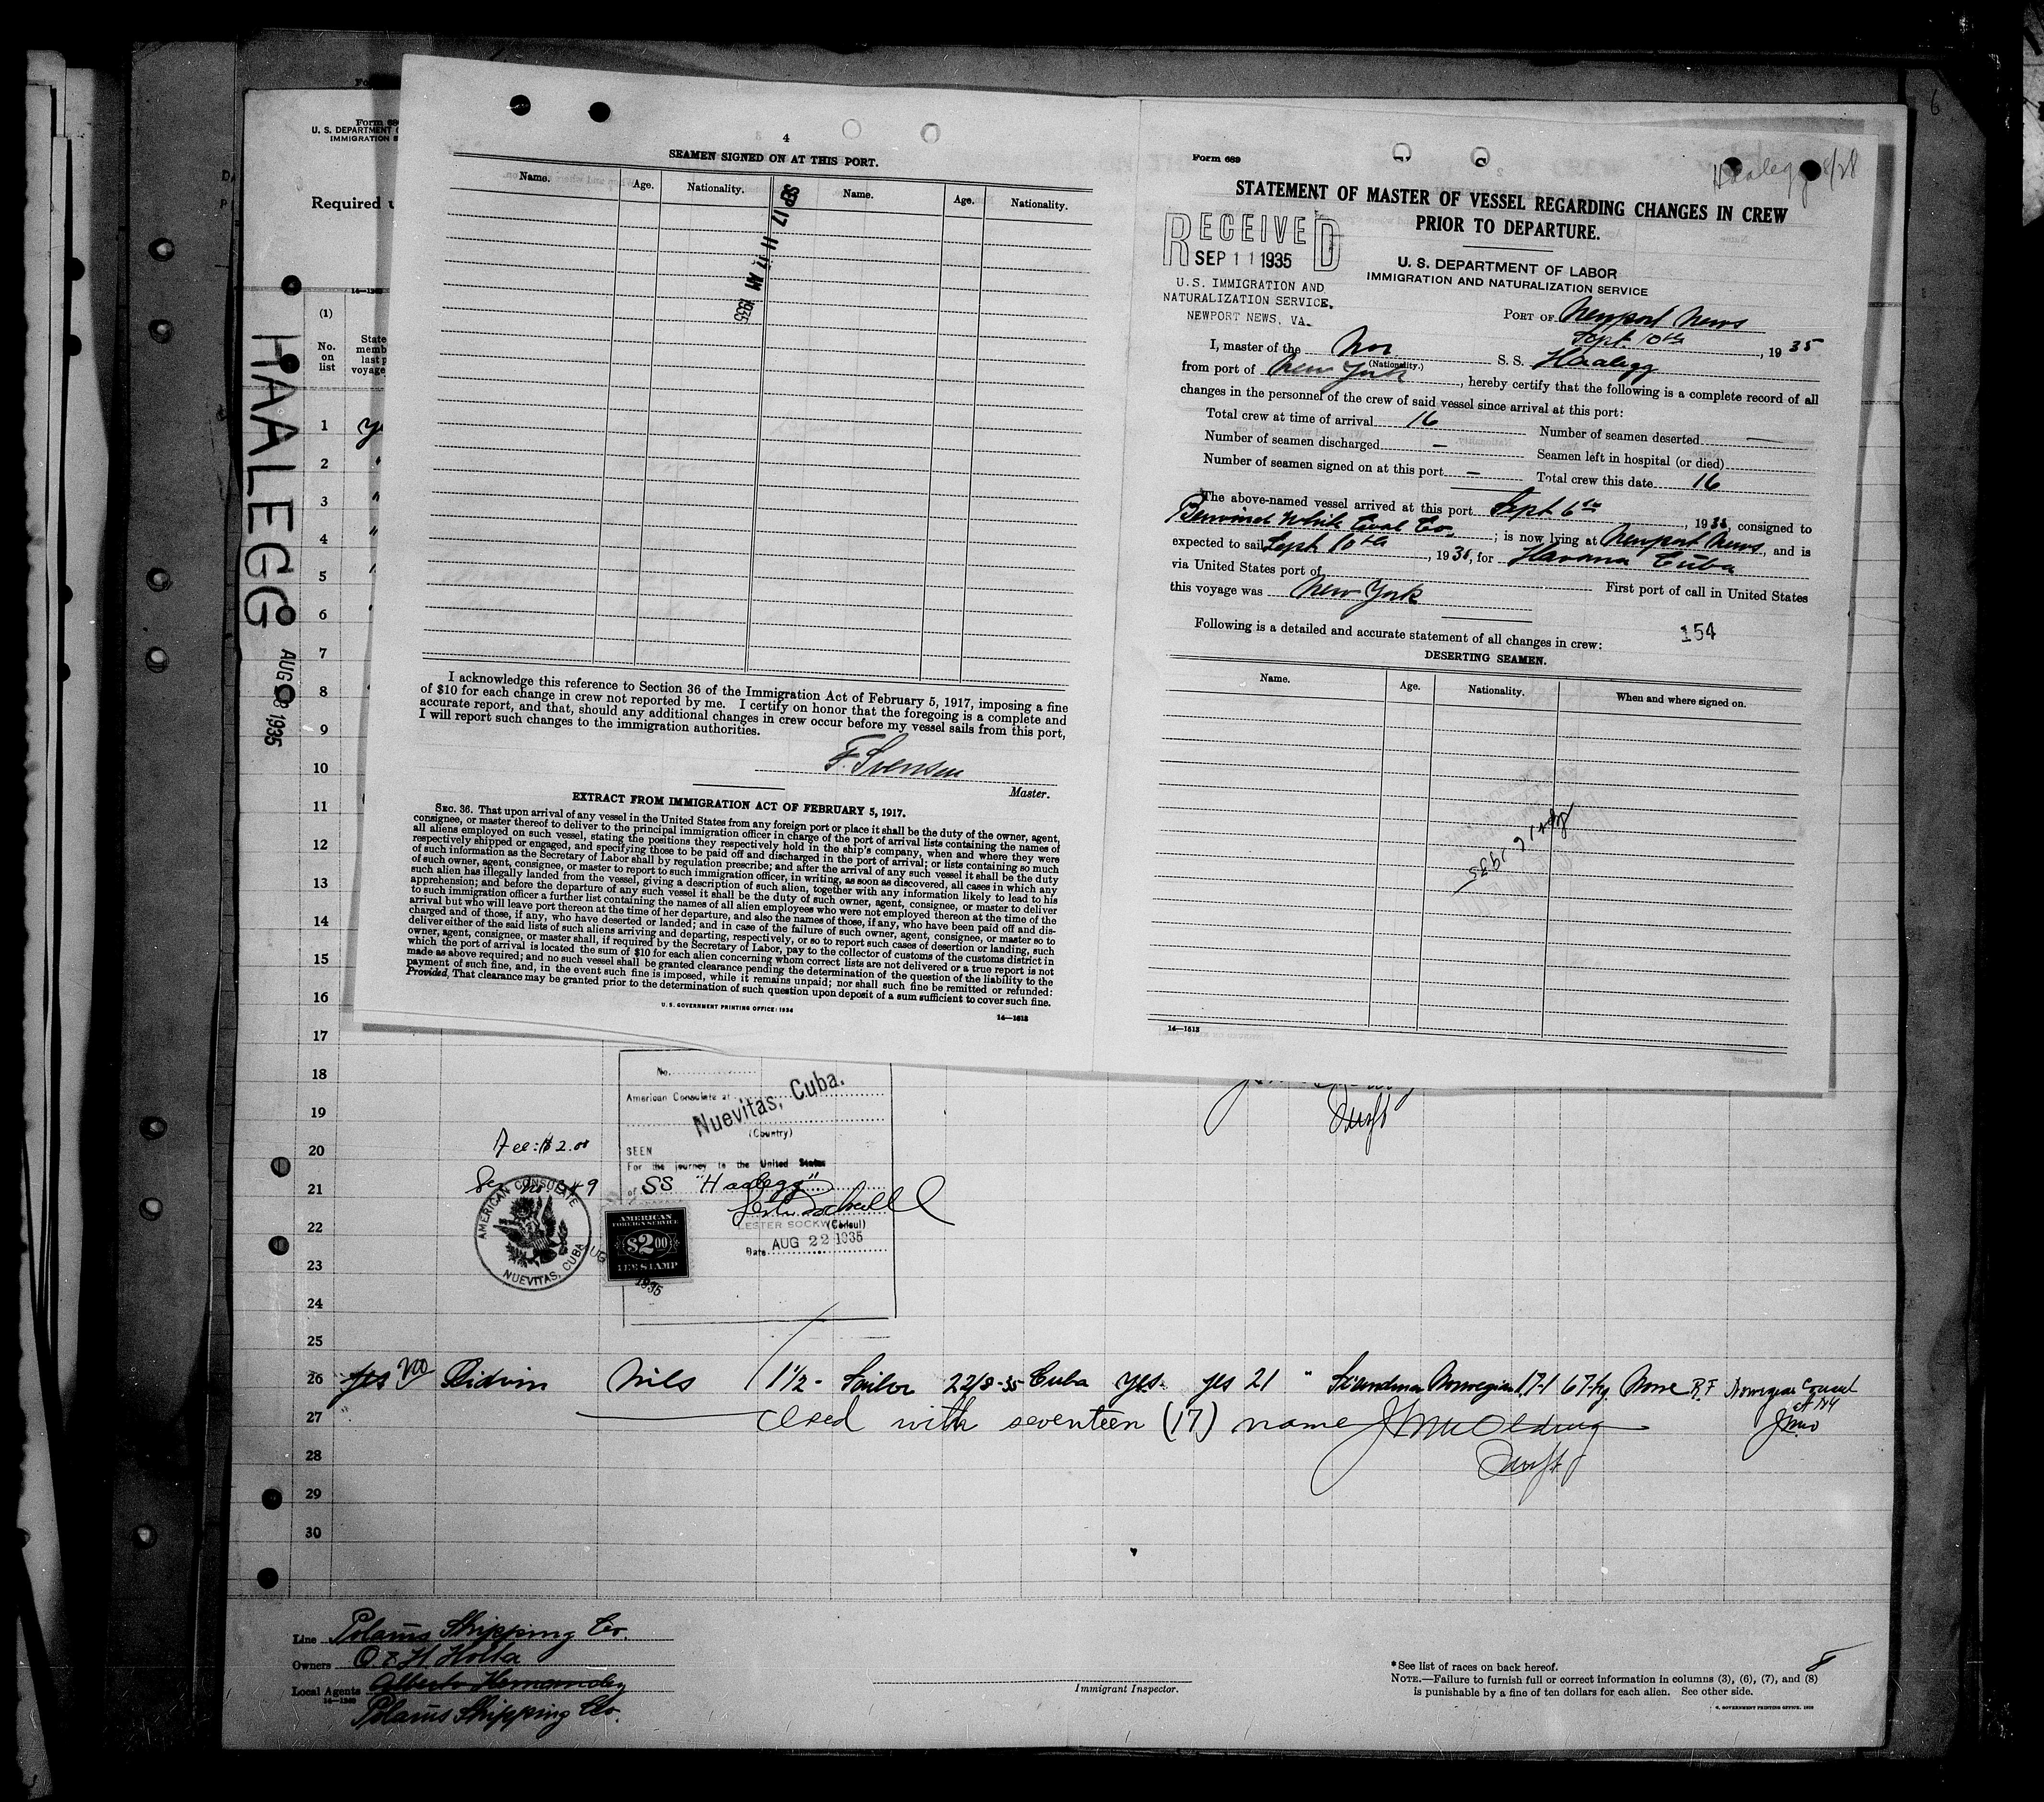 Form 689
U. S. DEPARTMENT
IMMIGRATION S
Required u
14—1240
(1)
No.
on
list
State
memb
last p
voyage
HAALEGG
AUG 28 1935
1
2
3
4
5
6
7
8
9
10
11
12
13
14
15
16
17
18
19
20
21
22
23
24
25
4
SEAMEN SIGNED ON AT THIS PORT.
Name. Age. Nationality. Name. Age. Nationality.
SEP 17 11 17 AM 1935
I acknowledge this reference to Section 36 of the Immigration Act of February 5, 1917, imposing a fine
of $10 for each change in crew not reported by me. I certify on honor that the foregoing is a complete and
accurate report, and that, should any additional changes in crew occur before my vessel sails from this port,
I will report such changes to the immigration authorities.
F. Svensen
Master.
EXTRACT FROM IMMIGRATION ACT OF FEBRUARY 5, 1917.
SEC. 36. That upon arrival of any vessel in the United States from any foreign port or place it shall be the duty of the owner, agent,
consignee, or master thereof to deliver to the principal immigration officer in charge of the port of arrival lists containing the names of
all aliens employed on such vessel, stating the positions they respectively hold in the ship's company, when and where they were
respectively shipped or engaged, and specifying those to be paid off and discharged in the port of arrival; or lists containing so much
of such information as the Secretary of Labor shall by regulation prescribe; and after the arrival of any such vessel it shall be the duty
of such owner, agent, consignee, or master to report to such immigration officer, in writing, as soon as discovered, all cases in which any
such alien has illegally landed from the vessel, giving a description of such alien, together with any information likely to lead to his
apprehension; and before the departure of any such vessel it shall be the duty of such owner, agent, consignee, or master to deliver
to such immigration officer a further list containing the names of all alien employees who were not employed thereon at the time of the
arrival but who will leave port thereon at the time of her departure, and also the names of those, if any, who have been paid off and dis-
charged and of those, if any, who have deserted or landed; and in case of the failure of such owner, agent, consignee, or master so to
deliver either of the said lists of such aliens arriving and departing, respectively, or so to report such cases of desertion or landing, such
owner, agent, consignee, or master shall, if required by the Secretary of Labor, pay to the collector of customs of the customs district in
which the port of arrival is located the sum of $10 for each alien concerning whom correct lists are not delivered or a true report is not
made as above required; and no such vessel shall be granted clearance pending the determination of the question of the liability to the
payment of such fine, and, in the event such fine is imposed, while it remains unpaid; nor shall such fine be remitted or refunded:
Provided, That clearance may be granted prior to the determination of such question upon deposit of a sum sufficient to cover such fine.
U. S. GOVERNMENT PRINTING OFFICE: 1934
14—1513
Form 689
Haalegg 8/28
STATEMENT OF MASTER OF VESSEL REGARDING CHANGES IN CREW
PRIOR TO DEPARTURE.
RECEIVED
SEP 11 1935
U.S. IMMIGRATION AND
NATURALIZATION SERVICE.
NEWPORT NEWS, VA.
U. S. DEPARTMENT OF LABOR
IMMIGRATION AND NATURALIZATION SERVICE
PORT OF Newport News
Sept. 10th, 1935
I, master of the Nor S. S. Haalegg
(Nationality.)
from port of New York, hereby certify that the following is a complete record of all
changes in the personnel of the crew of said vessel since arrival at this port:
Total crew at time of arrival 16 Number of seamen deserted —
Number of seamen discharged — Seamen left in hospital (or died)
Number of seamen signed on at this port — Total crew this date 16
The above-named vessel arrived at this port Sept 6th, 1935, consigned to
Berwind White Coal Co.; is now lying at Newport News, and is
expected to sail Sept 10th, 1935, for Havana Cuba
via United States port of First port of call in United States
this voyage was New York
Following is a detailed and accurate statement of all changes in crew:
154
DESERTING SEAMEN.
Name. Age. Nationality. When and where signed on.
14—1513
No.
American Consulate at
Nuevitas, Cuba.
(Country)
SEEN
For the journey to the United States
of SS "Haalegg"
LESTER SOCKW (Consul)
Date AUG 22 1935
Fee: $2.00
AMERICAN CONSULATE
NUEVITAS, CUBA
AMERICAN
FOREIGN SERVICE
$2.00
FEE STAMP
1935
26 yes no Nils 1½ - Sailor 22/8-35 Cuba yes yes 21 " Scandinav Norwegian 171 67 kg None R.F Norwegian Consul
27 closed with seventeen (17) name
28
29
30
Line Polarus Shipping Co.
Owners O. & H. Holta
Local Agents Alberto Hernandez
14—1240
Polarus Shipping Co.
Immigrant Inspector.
8
*See list of races on back hereof.
NOTE.—Failure to furnish full or correct information in columns (3), (6), (7), and (8)
is punishable by a fine of ten dollars for each alien. See other side.